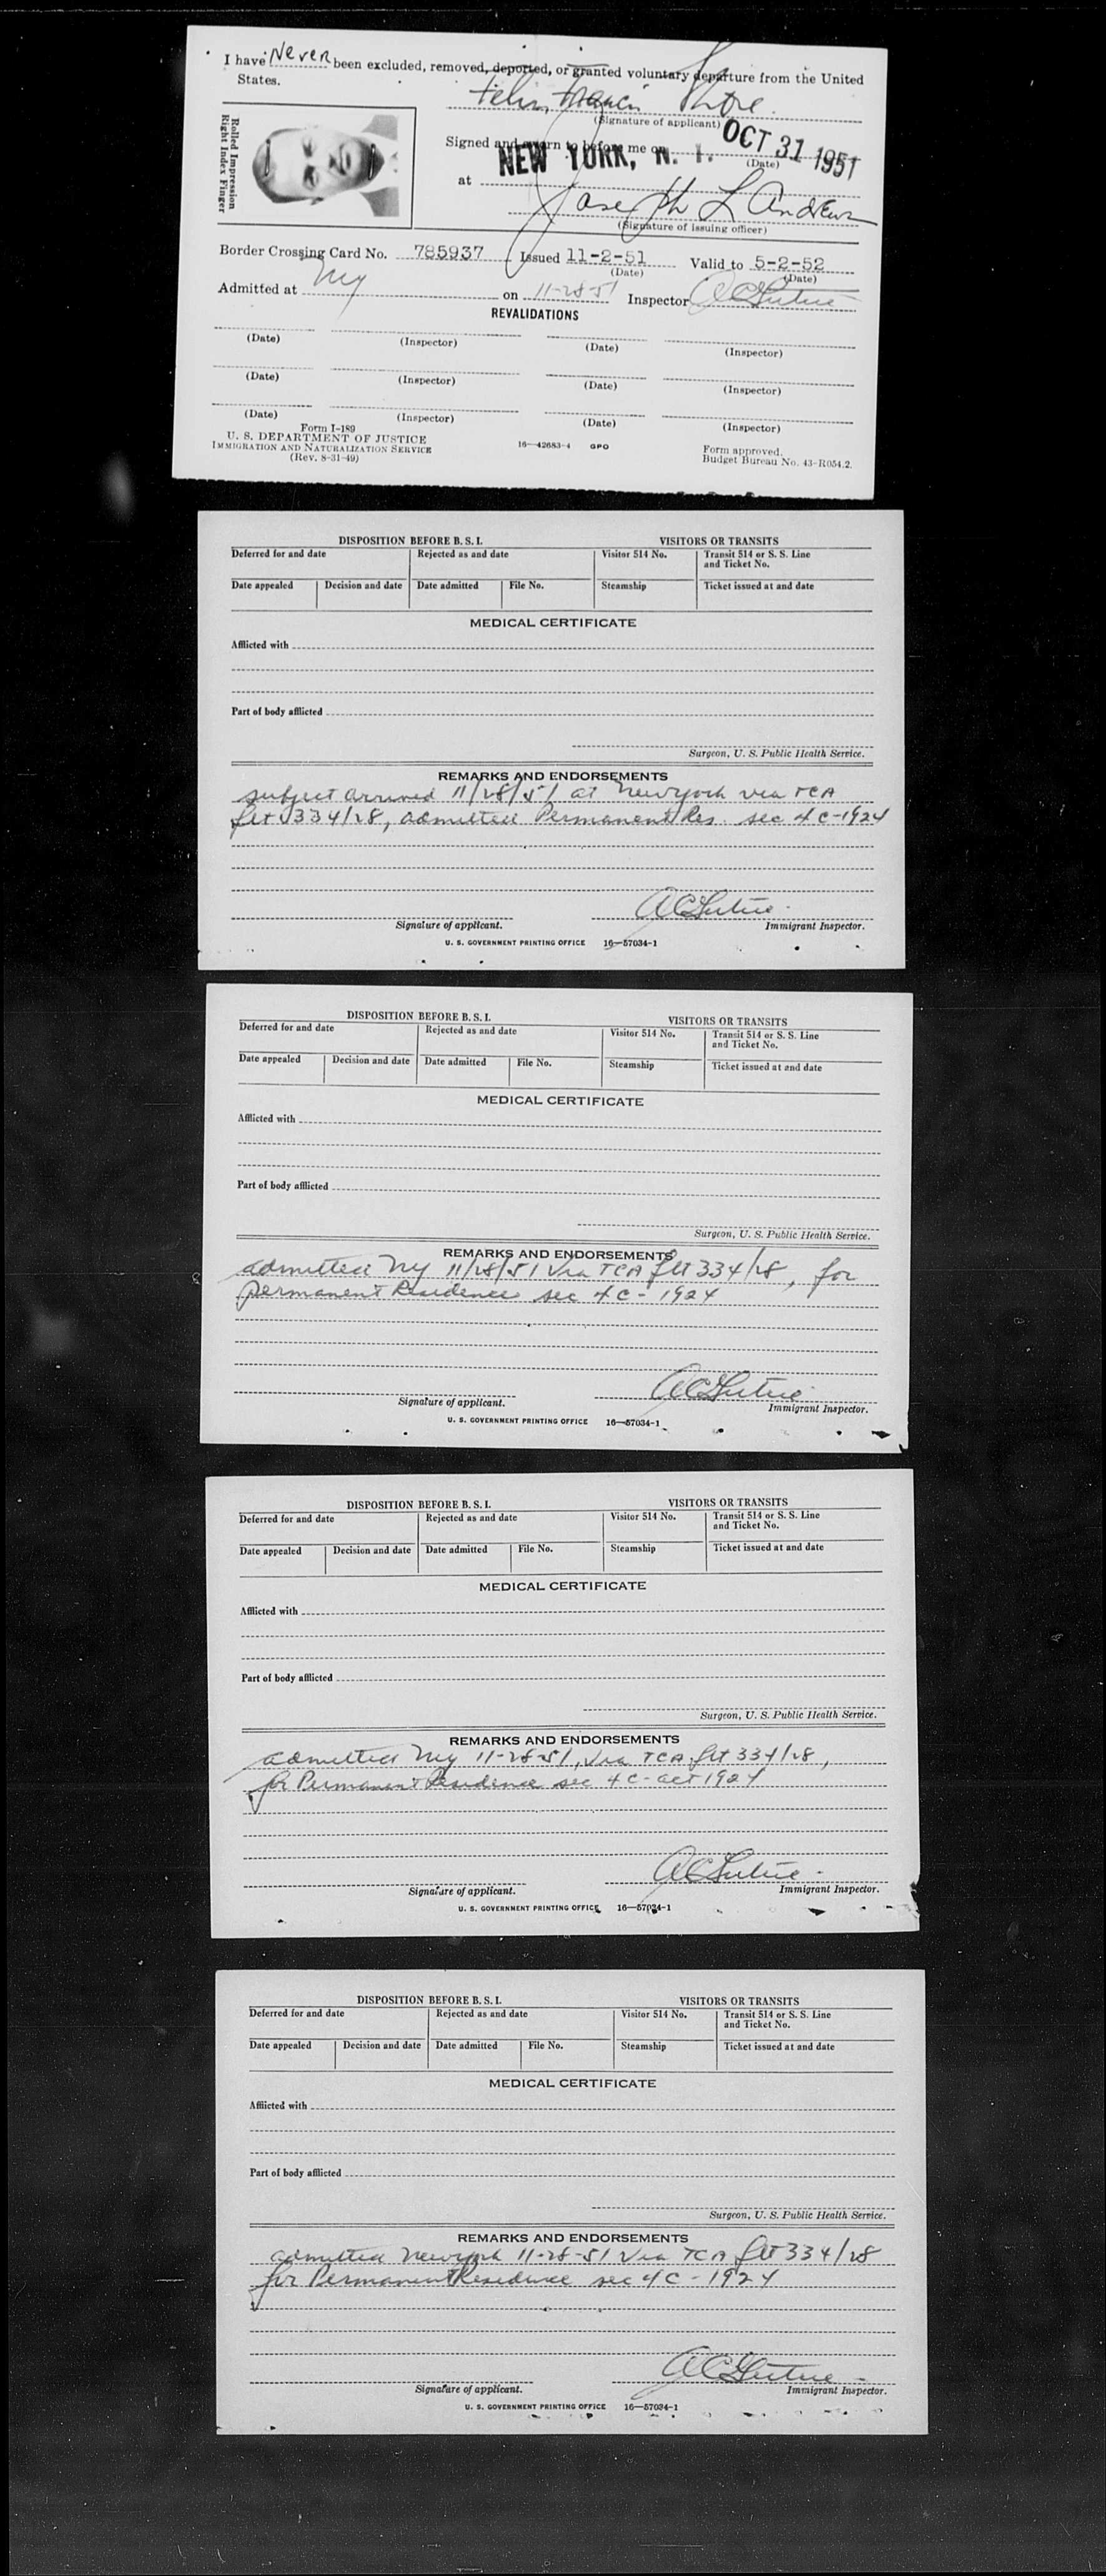 I have Never been excluded, removed, deported, or granted voluntary departure from the United
States.
Francis
(Signature of applicant)
Rolled Impression
Right Index Finger
Signed and sworn to before me on OCT 31 1951
(Date)
at NEW YORK, N. Y.
Joseph L Andrews
(Signature of issuing officer)
Border Crossing Card No. 785937 Issued 11-2-51 Valid to 5-2-52
(Date) (Date)
Admitted at NY on 11-28-51 Inspector
REVALIDATIONS
(Date) (Inspector) (Date) (Inspector)
(Date) (Inspector) (Date) (Inspector)
(Date) (Inspector) (Date) (Inspector)
Form I-189
U. S. DEPARTMENT OF JUSTICE
IMMIGRATION AND NATURALIZATION SERVICE
(Rev. 8-31-49)
16—42683-4 GPO
Form approved.
Budget Bureau No. 43-R054.2.
DISPOSITION BEFORE B. S. I. VISITORS OR TRANSITS
Deferred for and date Rejected as and date Visitor 514 No. Transit 514 or S. S. Line
and Ticket No.
Date appealed Decision and date Date admitted File No. Steamship Ticket issued at and date
MEDICAL CERTIFICATE
Afflicted with
Part of body afflicted
Surgeon, U. S. Public Health Service.
REMARKS AND ENDORSEMENTS
subject arrived 11/28/51 at New York via TCA
flt 334/28, admitted Permanent Res. sec 4C-1924
Signature of applicant. Immigrant Inspector.
U. S. GOVERNMENT PRINTING OFFICE 16—57034-1
DISPOSITION BEFORE B. S. I. VISITORS OR TRANSITS
Deferred for and date Rejected as and date Visitor 514 No. Transit 514 or S. S. Line
and Ticket No.
Date appealed Decision and date Date admitted File No. Steamship Ticket issued at and date
MEDICAL CERTIFICATE
Afflicted with
Part of body afflicted
Surgeon, U. S. Public Health Service.
REMARKS AND ENDORSEMENTS
admitted NY 11/28/51 Via TCA flt 334/28, for
permanent Residence sec 4C - 1924
Signature of applicant. Immigrant Inspector.
U. S. GOVERNMENT PRINTING OFFICE 16—57034-1
DISPOSITION BEFORE B. S. I. VISITORS OR TRANSITS
Deferred for and date Rejected as and date Visitor 514 No. Transit 514 or S. S. Line
and Ticket No.
Date appealed Decision and date Date admitted File No. Steamship Ticket issued at and date
MEDICAL CERTIFICATE
Afflicted with
Part of body afflicted
Surgeon, U. S. Public Health Service.
REMARKS AND ENDORSEMENTS
admitted NY 11-28-51, Via TCA flt 334/28,
for Permanent Residence sec 4C - act 1924
Signature of applicant. Immigrant Inspector.
U. S. GOVERNMENT PRINTING OFFICE 16—57034-1
DISPOSITION BEFORE B. S. I. VISITORS OR TRANSITS
Deferred for and date Rejected as and date Visitor 514 No. Transit 514 or S. S. Line
and Ticket No.
Date appealed Decision and date Date admitted File No. Steamship Ticket issued at and date
MEDICAL CERTIFICATE
Afflicted with
Part of body afflicted
Surgeon, U. S. Public Health Service.
REMARKS AND ENDORSEMENTS
admitted New York 11-28-51 Via TCA flt 334/28
for Permanent Residence sec 4C - 1924
Signature of applicant. Immigrant Inspector.
U. S. GOVERNMENT PRINTING OFFICE 16—57034-1